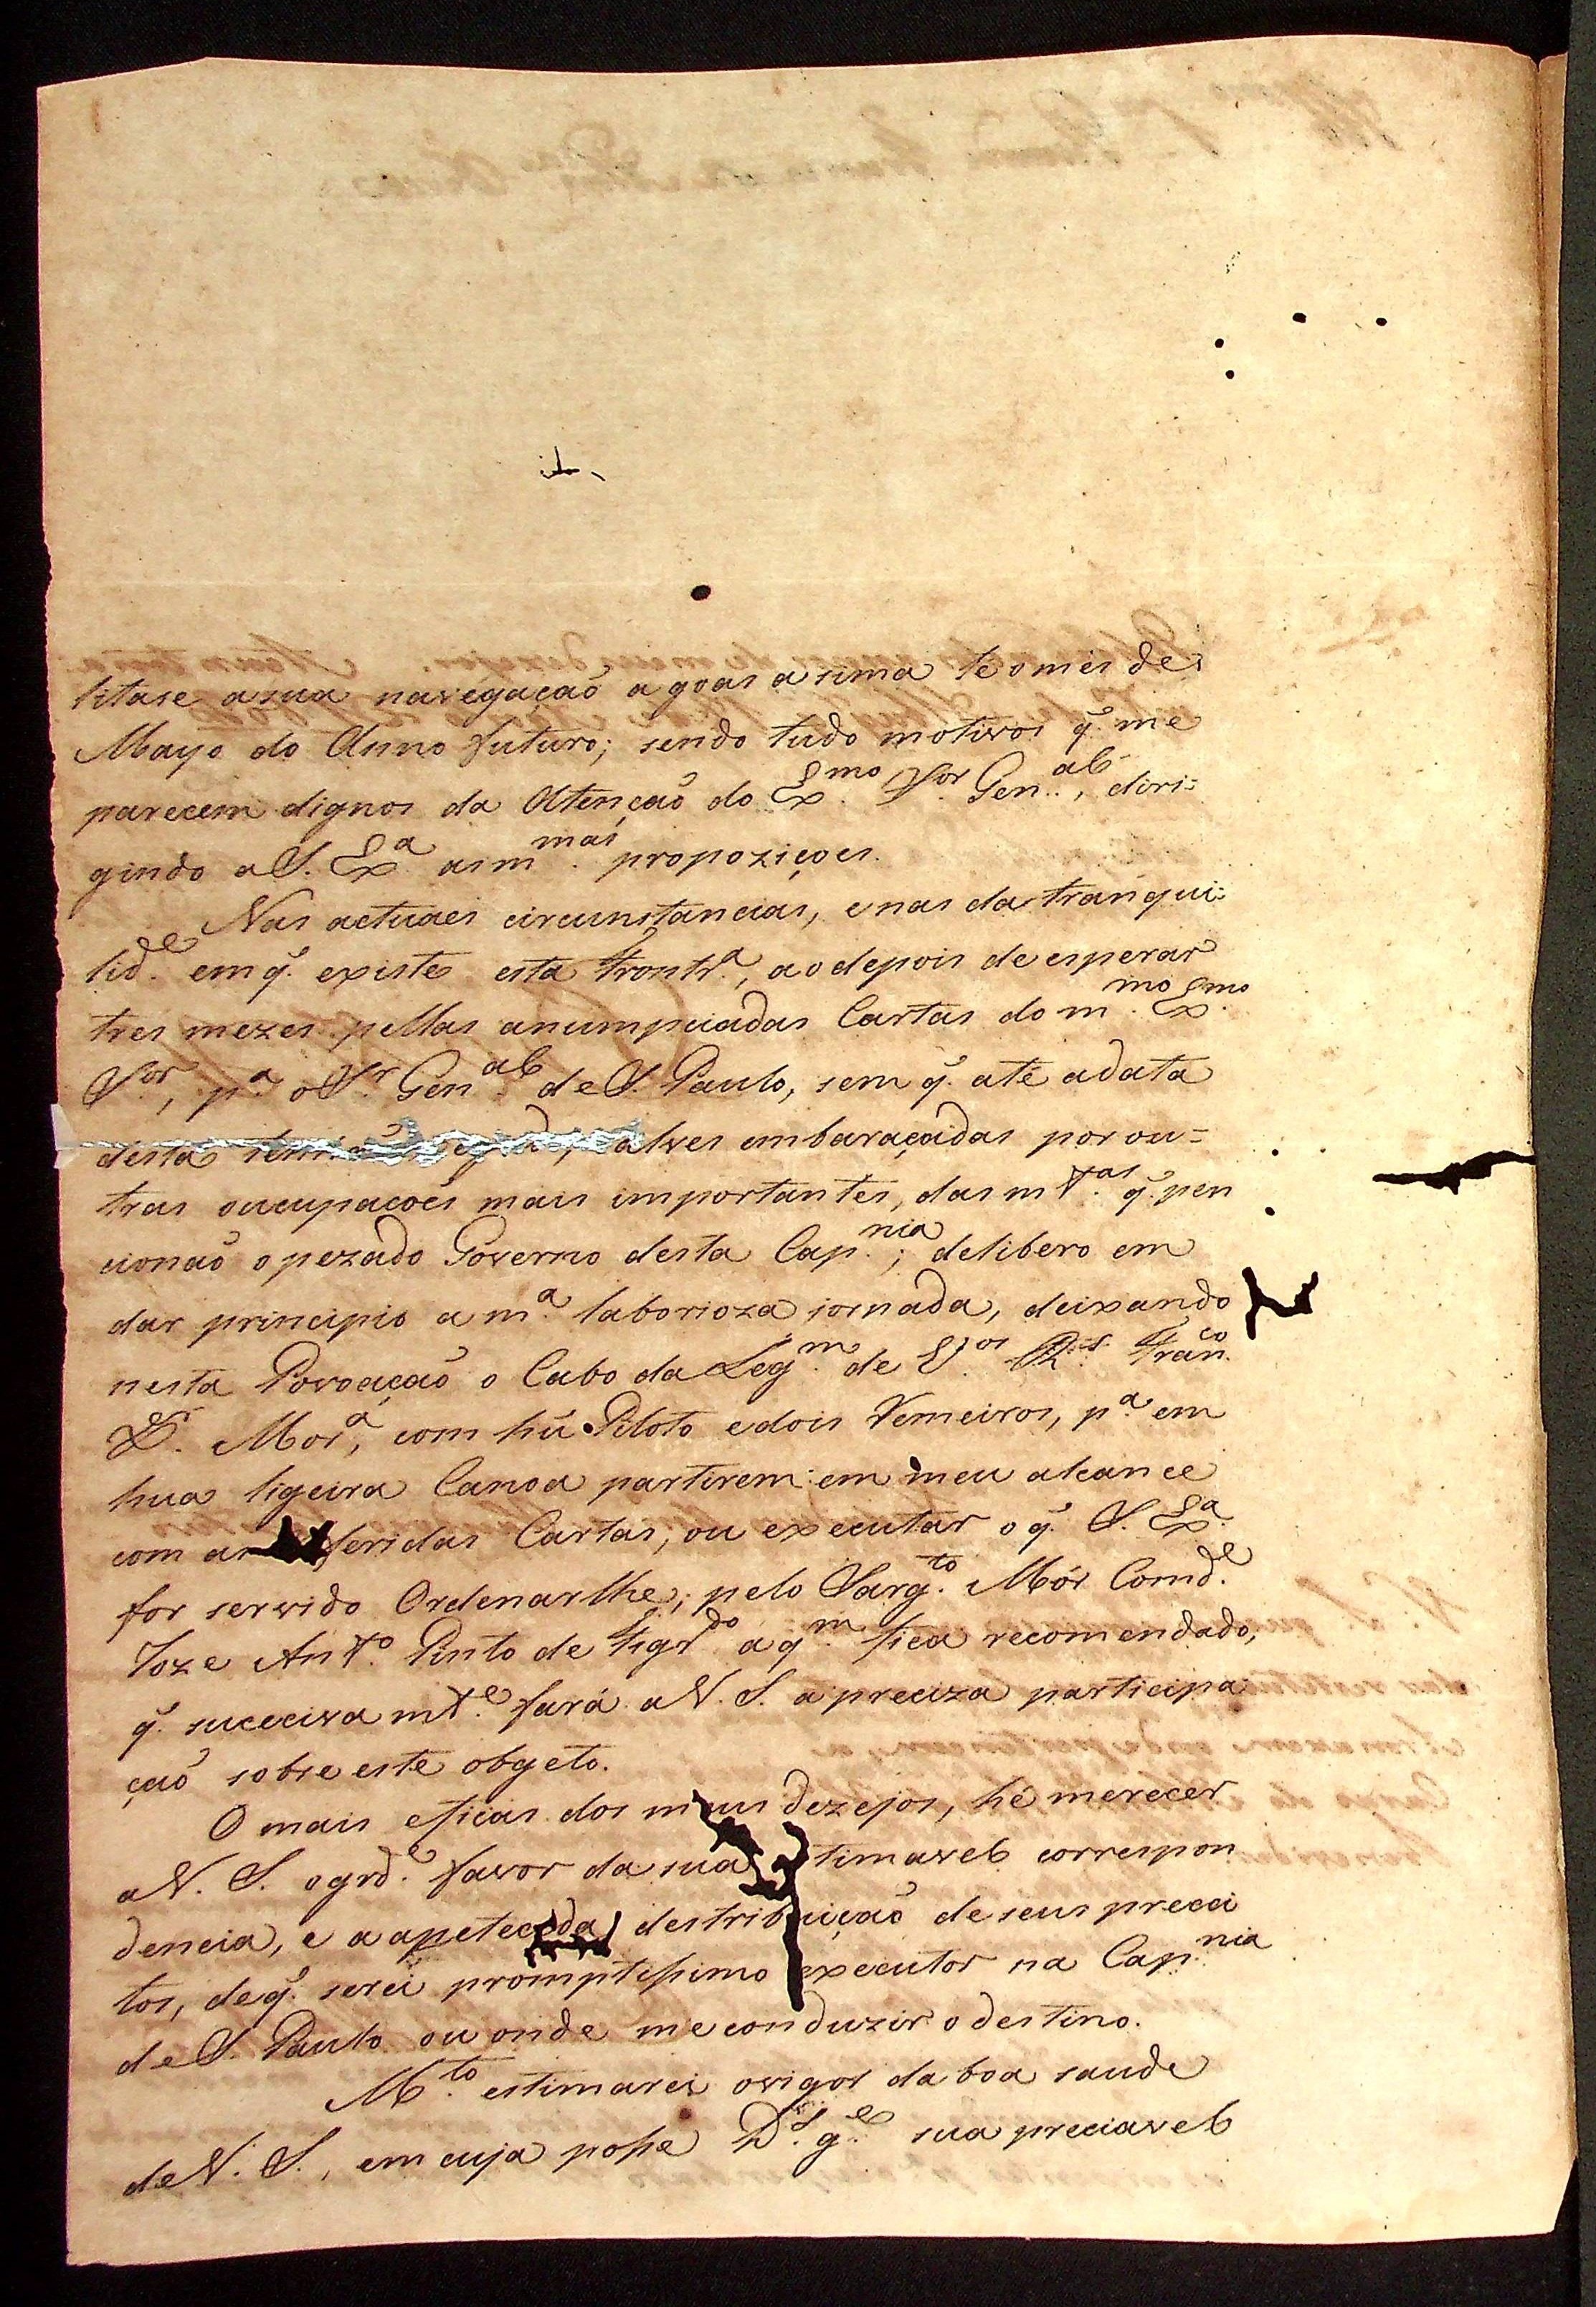 litase a sua navegação agoas asima té o mes de
Mayo do Anno futuro; sendo tudo motivos q̃. me
parecem dignos da Atenção do Ex.mo S.or Gen.al, diri=
gindo a S. Ex.a as m.mas propoziçoes.
Nas actuaes circunstancias, e nas da tranqui=
lid.e em q̃. existe esta Frontr.a, ao depois de esperar
tres mezes pellas anumpciadas Cartas do m.mo Ex.mo
S.or, p.a o S.r Gen.al de S. Paulo, sem q̃. até a data
desta alves embaraçadas por ou=
tras oucupacoẽs mais importantes, das mt.as q̃. pen
cionaõ o pezado Governo desta Cap.nia; delibero em
dar principio a m.a laborioza jornada, deixando
nesta Povoação o Cabo da Leg.m de Fran.co
X.r Mor.a, com hũ Piloto e dois Remeiros, p.a em
hua ligeira Canoa partirem em meu alcance
com as feridas Cartas, ou executar o q̃. S. Ex.a
for servido Ordenarlhe, pelo Sarg.to Mór Comd.e
Joze Ant.o Pinto de Figr.do a q.m fica recomendado,
q̃. sucecivamt.e fará a V. S. a preciza participa
ção sobre este objeto.
O mais eficas dos meus dezejos, hé merecer
a V. S. o grd.e favor da sua timavel correspon
dencia, e a apetecida destribuição de seus precei
tos, de q̃. serei promptissimo executor na Cap.nia
de S. Paulo ou onde me conduzir o destino.
M.to estimarei o vigor da boa saude
de V. S., em cuja posse D.s g.e sua preciavel